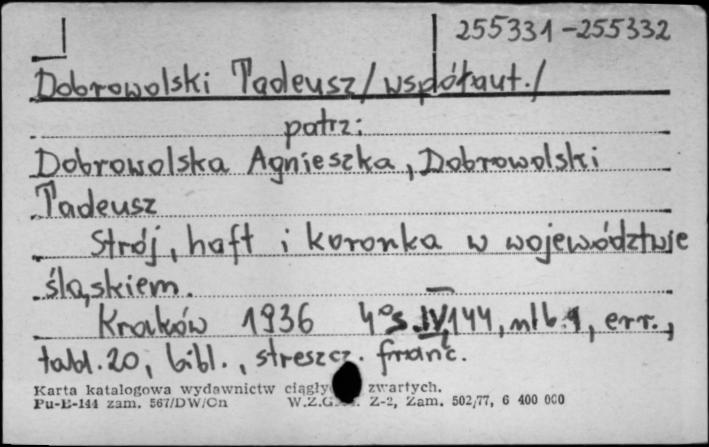 255331-255332
Dobrowolski Tadeusz/współaut./
patrz:
Dobrowolska Agnieszka, Dobrowolski
Tadeusz
Strój, haft i koronka w województwie
śląskiem.
Kraków 1936 4° s. IV, 144, nlb. 1, err.,
tabl. 20, bibl., streszcz. franc.
Karta katalogowa wydawnictw zwartych.
Pu-E-144 zam. 567/DW/Cn Z-2, Zam. 502/77, 6 400 000